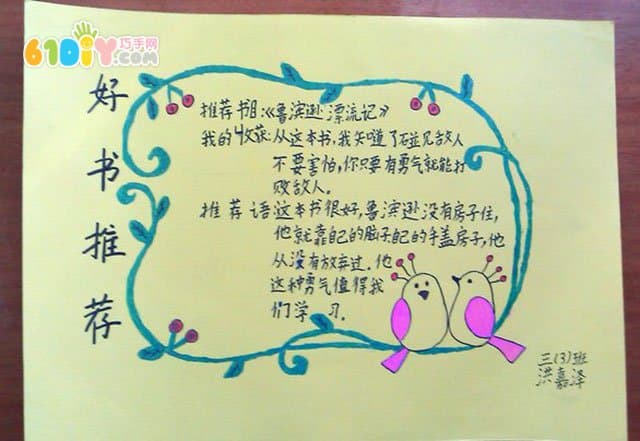 61DIY巧手网
.com
好书推荐
推荐书目:《鲁滨逊漂流记》
我的收获:从这本书,我知道了碰见敌人
不要害怕,你只要有勇气就能打
败敌人.
推荐语:这本书很好,鲁滨逊没有房子住,
他就靠自己的脑子自己的手盖房子,他
从没有放弃过.他
这种勇气值得我
们学习.
三(3)班
洪嘉泽